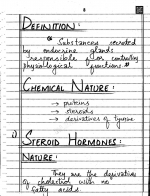 DEFINITION:
" Substances secreted
by endocrine glands
responsible for controlling
physiological functions "
CHEMICAL NATURE:
→ proteins
→ steroids
→ derivatives of tyrosine
i) STEROID HORMONES:
NATURE:
They are the derivatives
of cholesterol with no
fatty acids